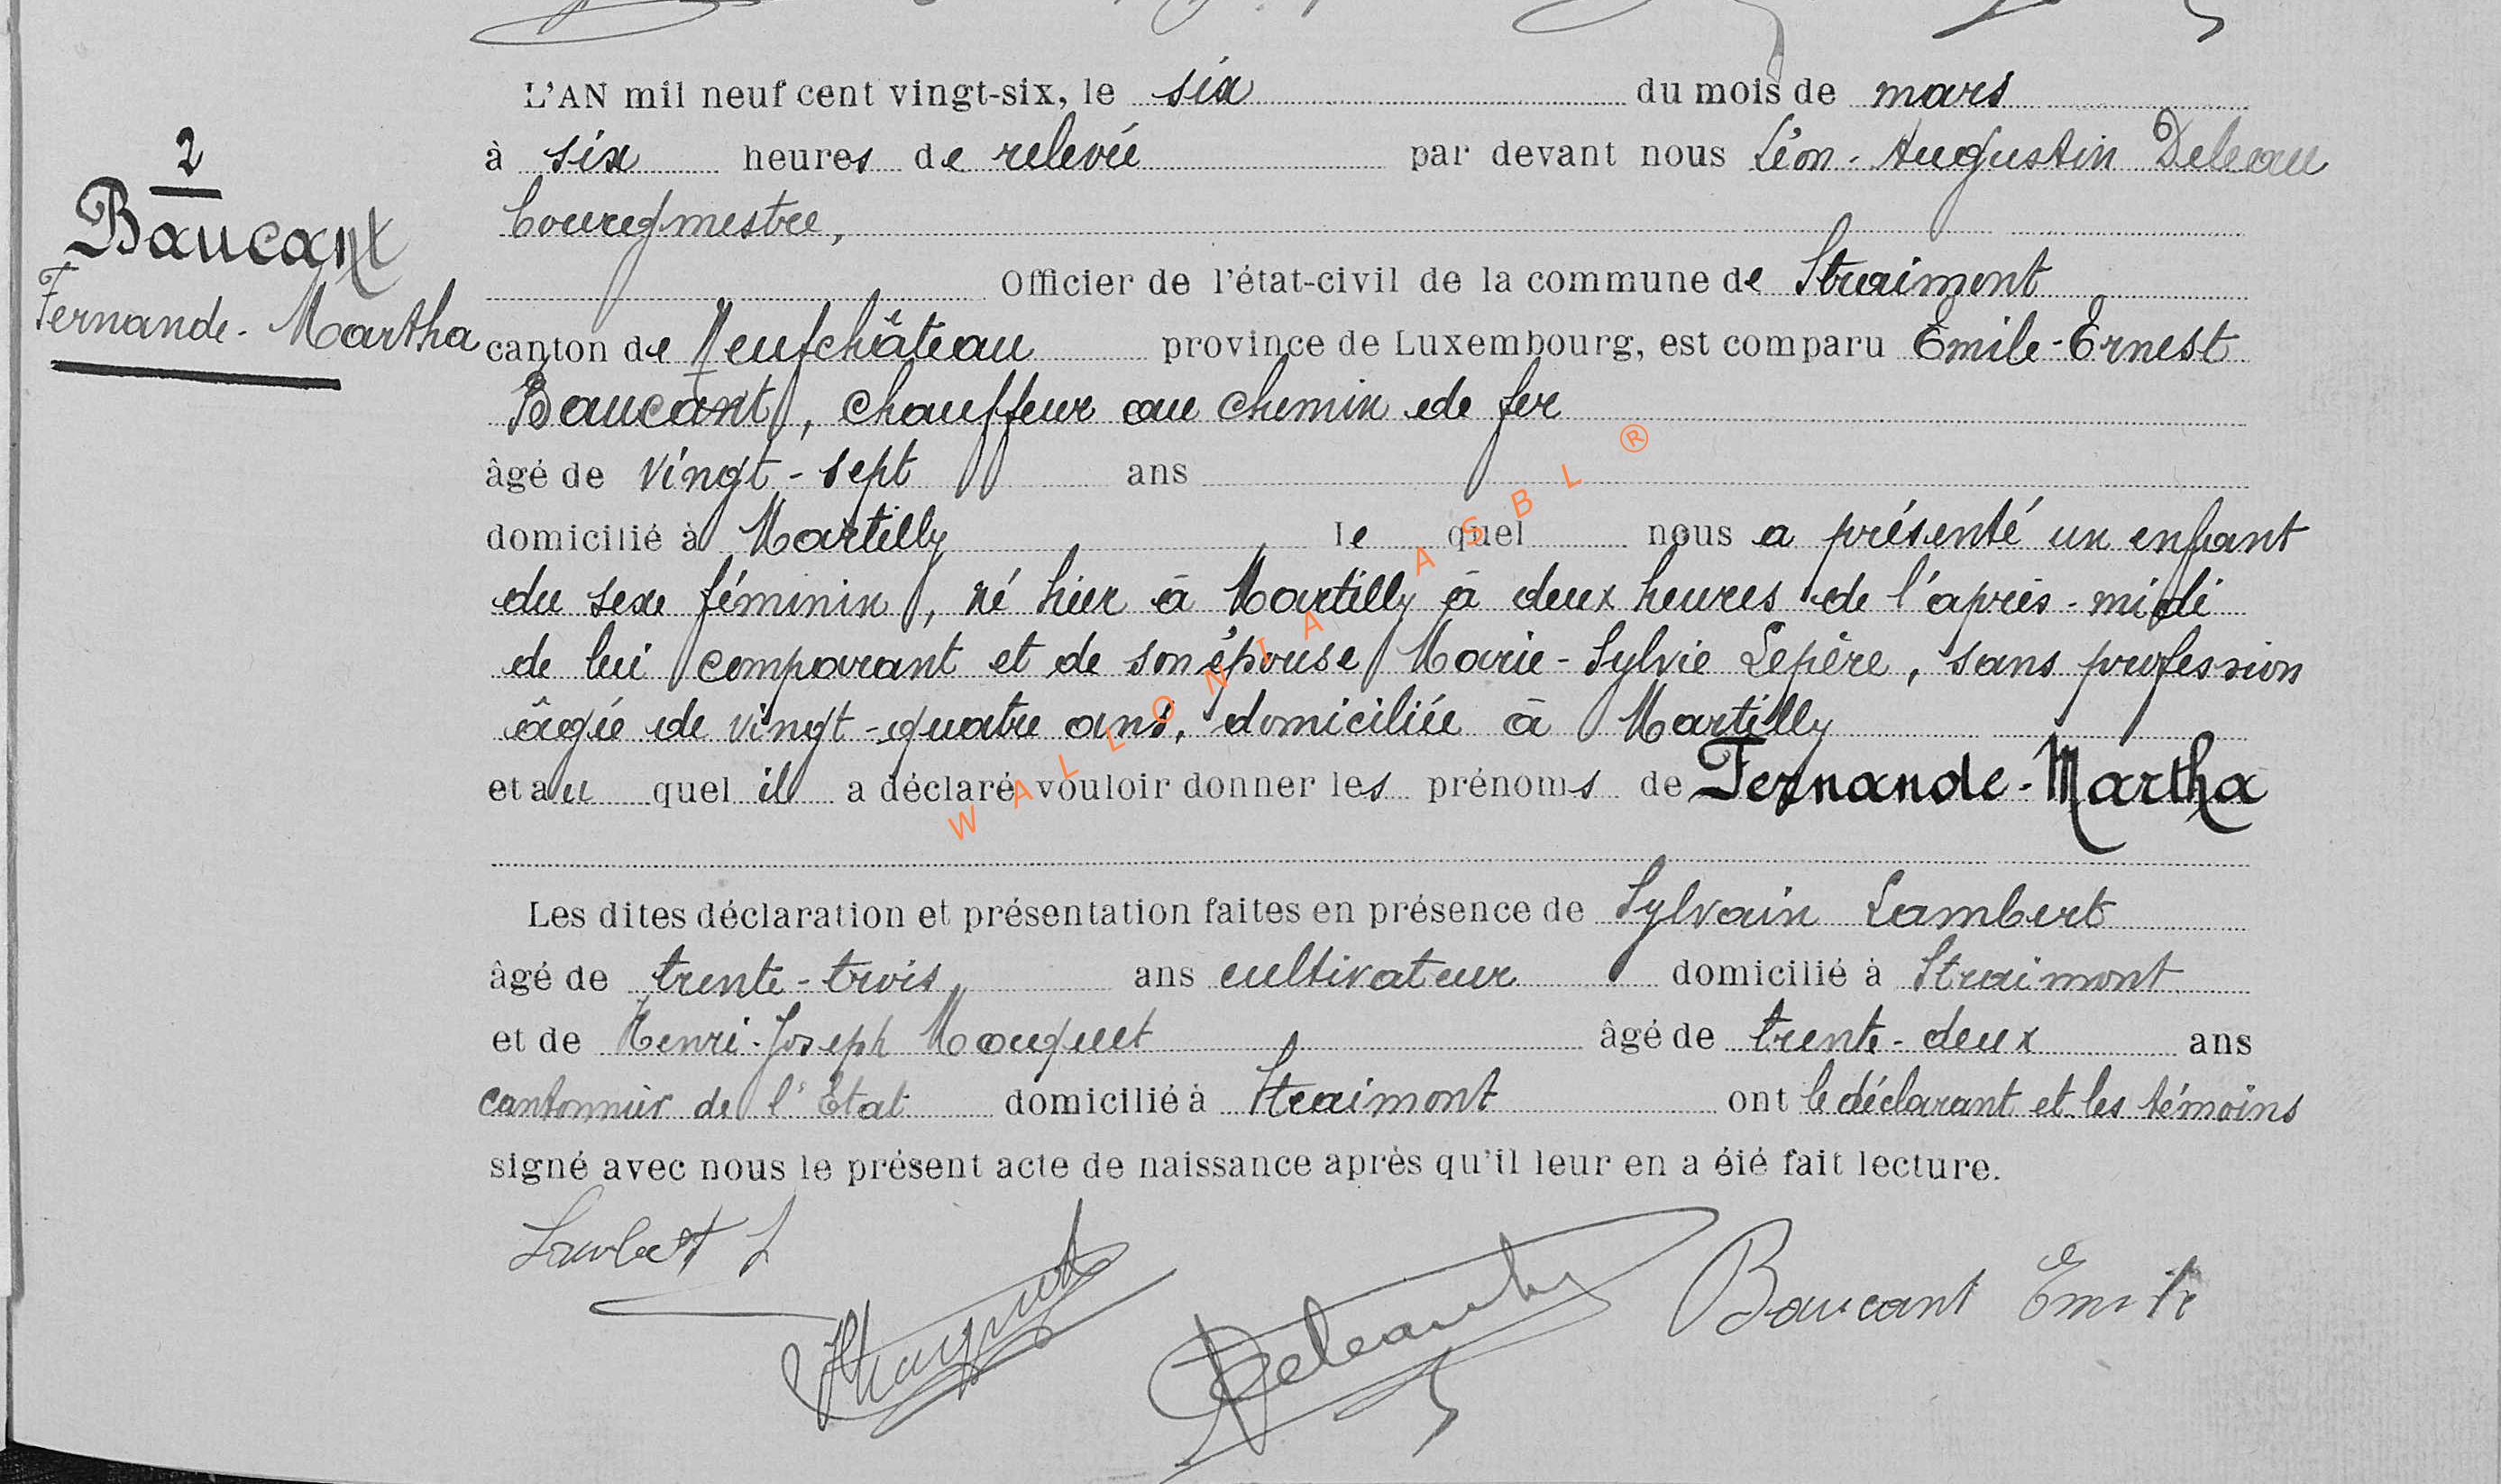 2
Baucant
Fernande-Martha
L'AN mil neuf cent vingt-six, le six du mois de mars
à six heures de relevée par devant nous Léon-Augustin Deleau
bourgmestre,
Officier de l'état-civil de la commune de Straimont
canton de Neufchâteau province de Luxembourg, est comparu Emile-Ernest
Baucant, chauffeur au chemin de fer
âgé de vingt-sept ans
domicilié à Martilly le quel nous a présenté un enfant
du sexe féminin, né hier à Martilly à deux heures de l'après-midi
de lui comparant et de son épouse Marie-Sylvie Lepère, sans profession
âgée de vingt-quatre ans, domiciliée à Martilly
et au quel il a déclaré vouloir donner les prénoms de Fernande-Martha
Les dites déclaration et présentation faites en présence de Sylvain Lambert
âgé de trente-trois ans cultivateur domicilié à Straimont
et de Henri-Joseph Mouquet âgé de trente-deux ans
cantonnier de l'Etat domicilié à Straimont ont le déclarant et les témoins
signé avec nous le présent acte de naissance après qu'il leur en a été fait lecture.
Lambert S
Baucant Emile
WALLONIA ASBL ®